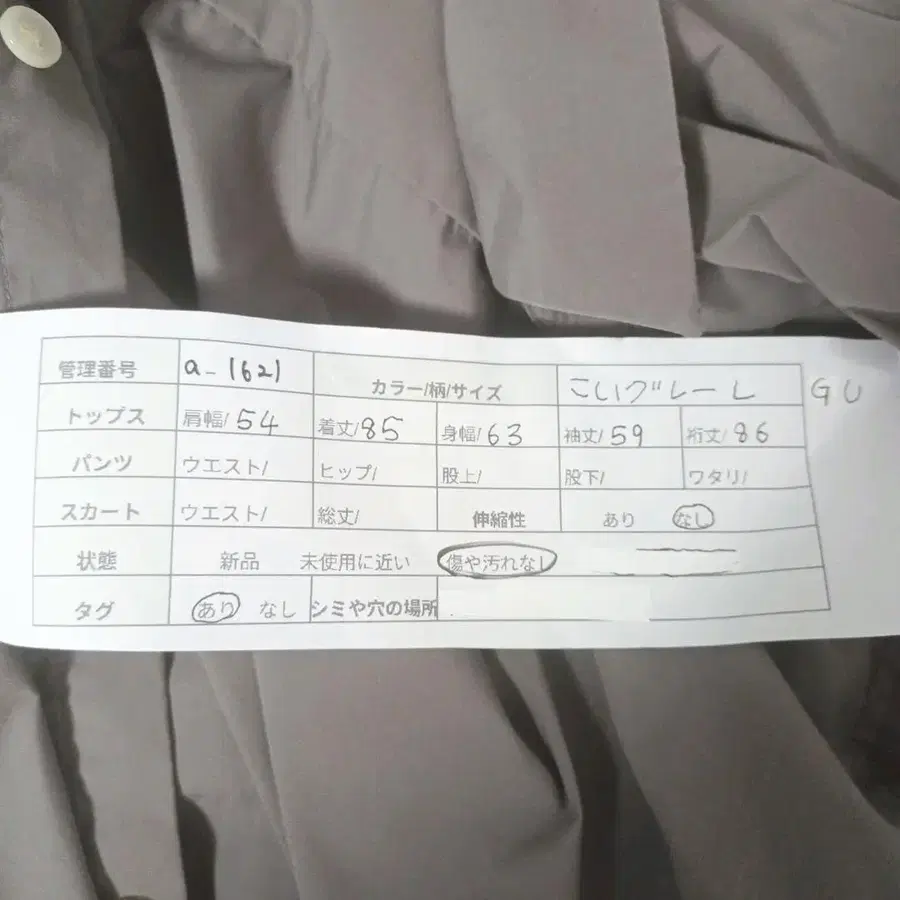 管理番号 a-1621 カラー/柄/サイズ こいグレー L GU
トップス 肩幅/54 着丈/85 身幅/63 袖丈/59 裄丈/86
パンツ ウエスト/ ヒップ/ 股上/ 股下/ ワタリ/
スカート ウエスト/ 総丈/ 伸縮性 あり なし
状態 新品 未使用に近い 傷や汚れなし
タグ あり なし シミや穴の場所